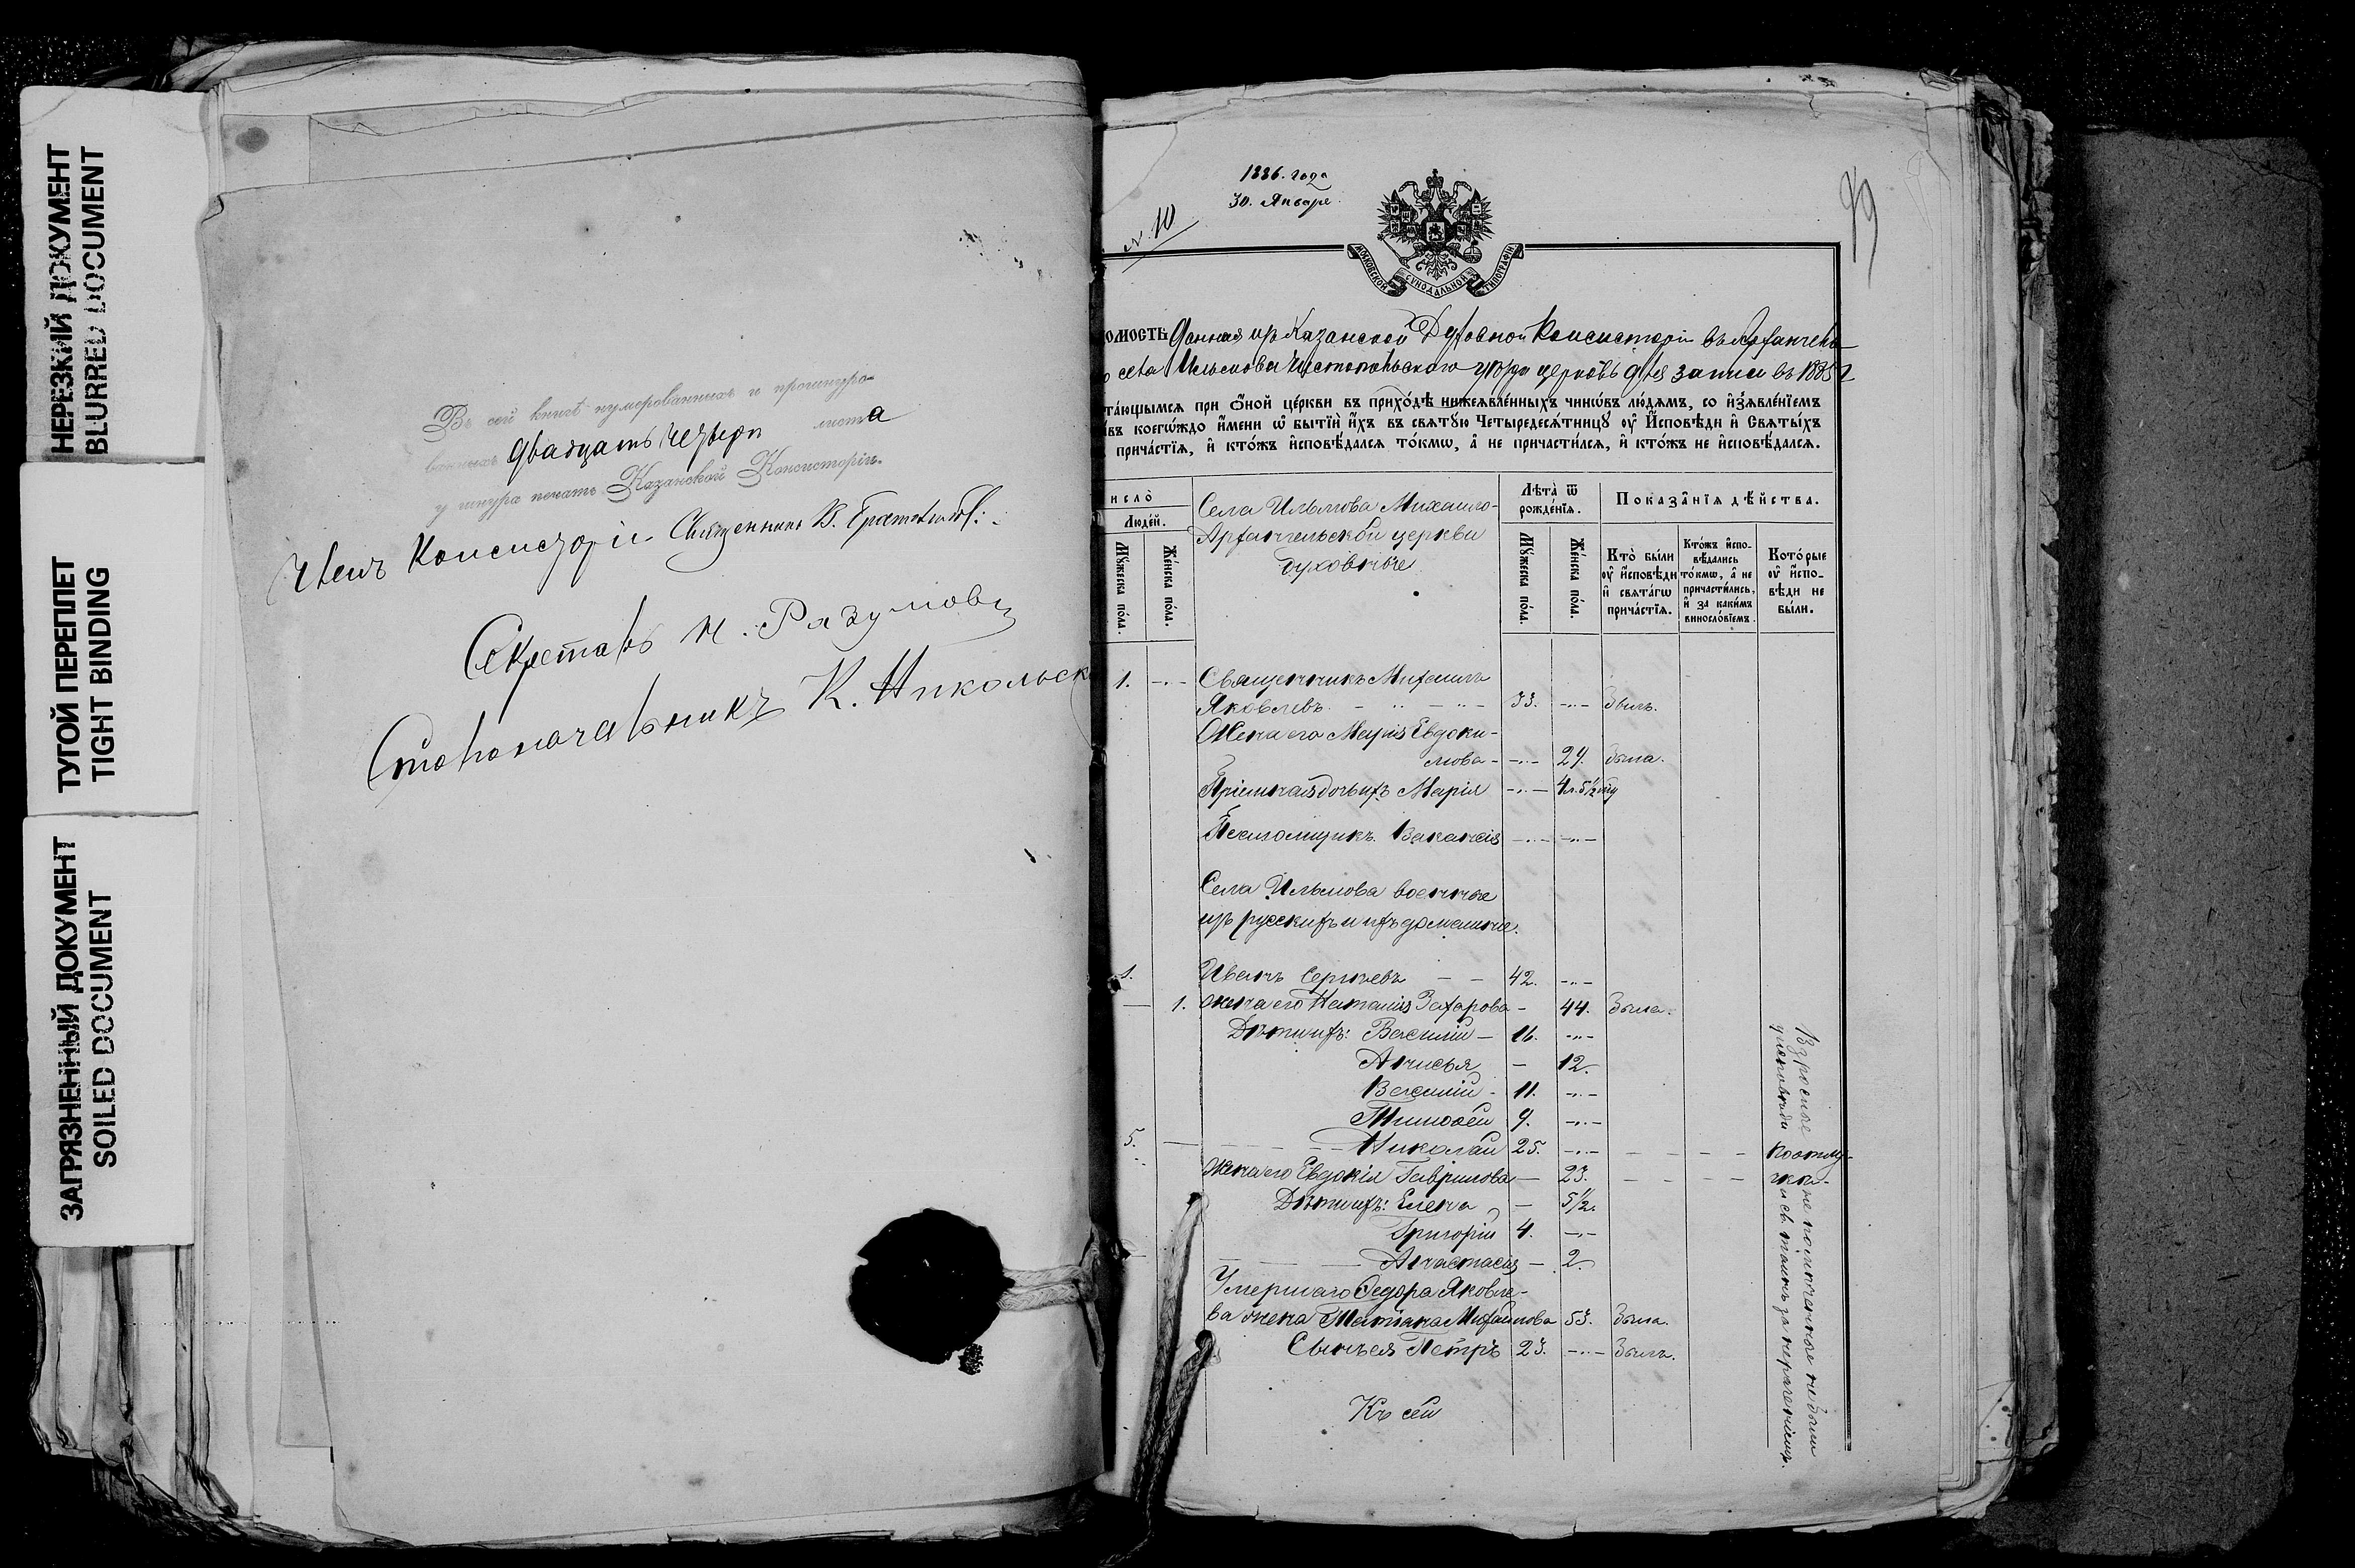 НЕРЕЗКИЙ ДОКУМЕНТ
BLURRED DOCUMENT
ТУГОЙ ПЕРЕПЛЕТ
TIGHT BINDING
ЗАГРЯЗНЕННЫЙ ДОКУМЕНТ
SOILED DOCUMENT
Въ сей книгѣ нумерованныхъ и прошнуро-
ванныхъ двадцать четыре листа
у шнура печать Казанской Консисторіи.
Членъ Консисторіи Священникъ
Секретарь Н. Разумовъ
Столоначальникъ К. Никольск
1886. года
30. Январе
№ 10
89
МОСКОВСКОЙ СѴНОДАЛЬНОЙ ТИПОГРАФІИ
омость данная изъ Казанской Духовной Консисторіи въ Архангель
села Ильмова Чистопольскаго уѣзда церковь для записи въ 1885
та́ющымсѧ при ѻ҆́ной це́ркви въ прихо́дѣ нижеѧвле́нныхъ чинѡ́въ лю́демъ, со и҆з̾ѧвле́нїемъ
въ коегѡ́ждо и҆́мени ѡ҆ бытїѝ и҆́хъ въ свѧту́ю Четыредесѧ́тницꙋ ᲂу҆ И҆сповѣди и҆ Свѧты́хъ
прича́стїѧ, и҆ кто́жъ и҆сповѣ́далсѧ то́кмѡ, а҆ не причасти́лсѧ, и҆ кто́жъ не и҆сповѣ́далсѧ.
исло̀
Люде́й.
Мꙋ́жеска по́ла.
Же́нска по́ла.
Села Ильмова Михаило-
Архангельской церкви
духовные
Лѣта̀ ѿ рожде́нїѧ.
Мꙋ́жеска по́ла.
Же́нска по́ла.
Показа̑нїѧ дѣ́йства.
Кто̀ бы́ли ᲂу҆ и҆сповѣди и҆ свѧта́гѡ прича́стїѧ.
Кто́жъ и҆спо-вѣ́дались то́кмѡ, а҆ не причасти́лись, и҆ за каки́мъ винослѡ́вїемъ.
Кото́рые ᲂу҆ и҆спо-вѣди не бы́ли.
1. Священникъ Михаилъ
Яковлевъ 33. Былъ.
Жена его Марія Евдоки-
мова 29. Была.
Пріемная дочь ихъ Марія 4 л. 5 1/2
Псаломщикъ Вакансія
Села Ильмова военные
изъ русскихъ и ихъ домашніе.
1. Иванъ Сергѣевъ 42.
1. жена его Наталия Захарова 44. Была.
Дѣти ихъ: Василій 16.
Анисья 12.
Василій 11.
Тимофей 9.
5. Николай 25.
жена его Евдокія Гаврилова 23.
Дѣти ихъ: Елена 5 1/2.
Григорій 4.
Анастасія 2.
Умершаго Федора Яковле-
ва жена Татьяна Михайлова 53. Была.
Сынъ ея Петръ 23. Былъ.
Къ сей
Взрослые не помѣченные не были
у исповѣди и св. таинъ за нераченіемъ.